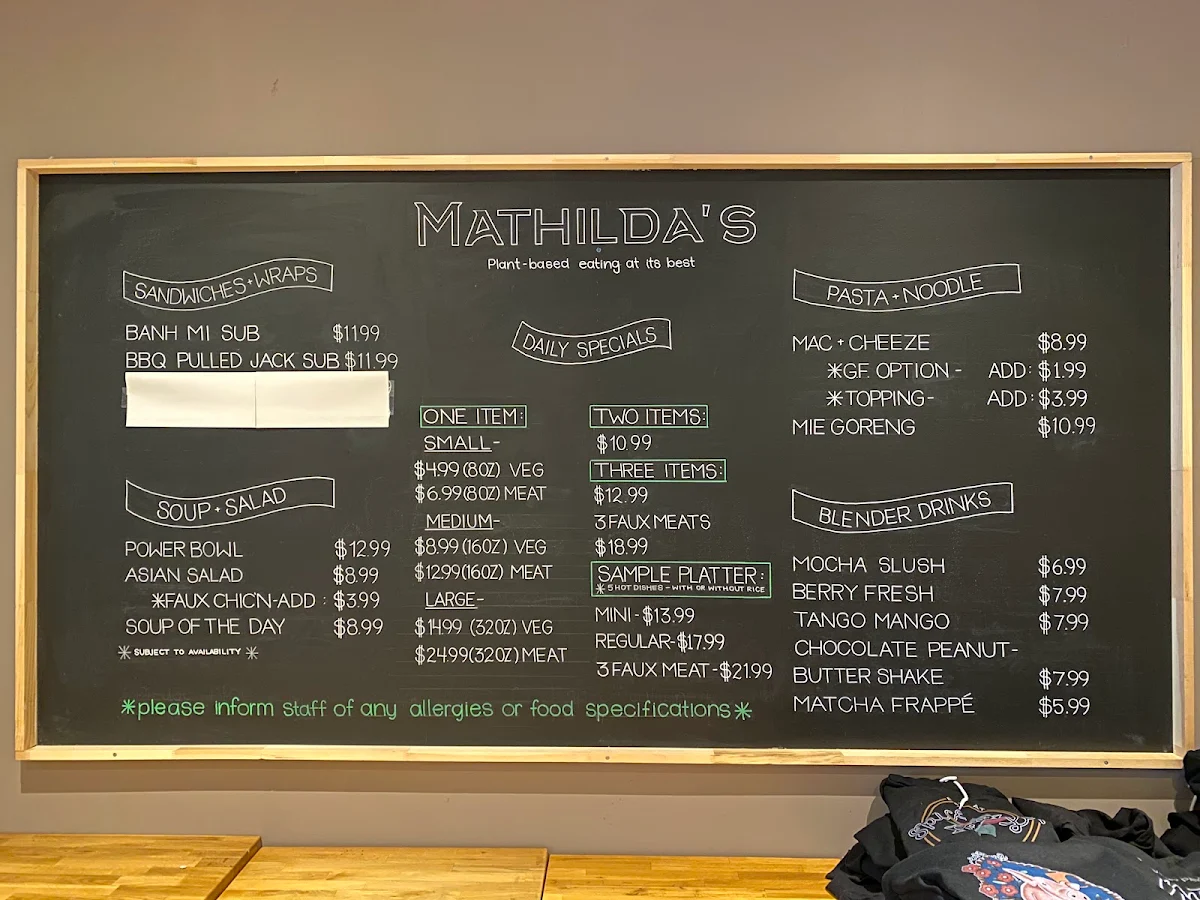 MATHILDA'S
Plant-based eating at its best
SANDWICHES+WRAPS
BANH MI SUB $11.99
BBQ PULLED JACK SUB $11.99
SOUP + SALAD
POWER BOWL $12.99
ASIAN SALAD $8.99
*FAUX CHIC'N-ADD : $3.99
SOUP OF THE DAY $8.99
*SUBJECT TO AVAILABILITY*
DAILY SPECIALS
ONE ITEM:
SMALL-
$4.99(8OZ) VEG
$6.99(8OZ) MEAT
MEDIUM-
$8.99(16OZ) VEG
$12.99(16OZ) MEAT
LARGE-
$14.99 (32OZ) VEG
$24.99(32OZ) MEAT
TWO ITEMS:
$10.99
THREE ITEMS:
$12.99
3 FAUX MEATS
$18.99
SAMPLE PLATTER:
*5 HOT DISHES - WITH OR WITHOUT RICE
MINI-$13.99
REGULAR-$17.99
3 FAUX MEAT-$21.99
PASTA + NOODLE
MAC + CHEEZE $8.99
*GF. OPTION - ADD: $1.99
*TOPPING- ADD: $3.99
MIE GORENG $10.99
BLENDER DRINKS
MOCHA SLUSH $6.99
BERRY FRESH $7.99
TANGO MANGO $7.99
CHOCOLATE PEANUT-
BUTTER SHAKE $7.99
MATCHA FRAPPÉ $5.99
*please inform staff of any allergies or food specifications*